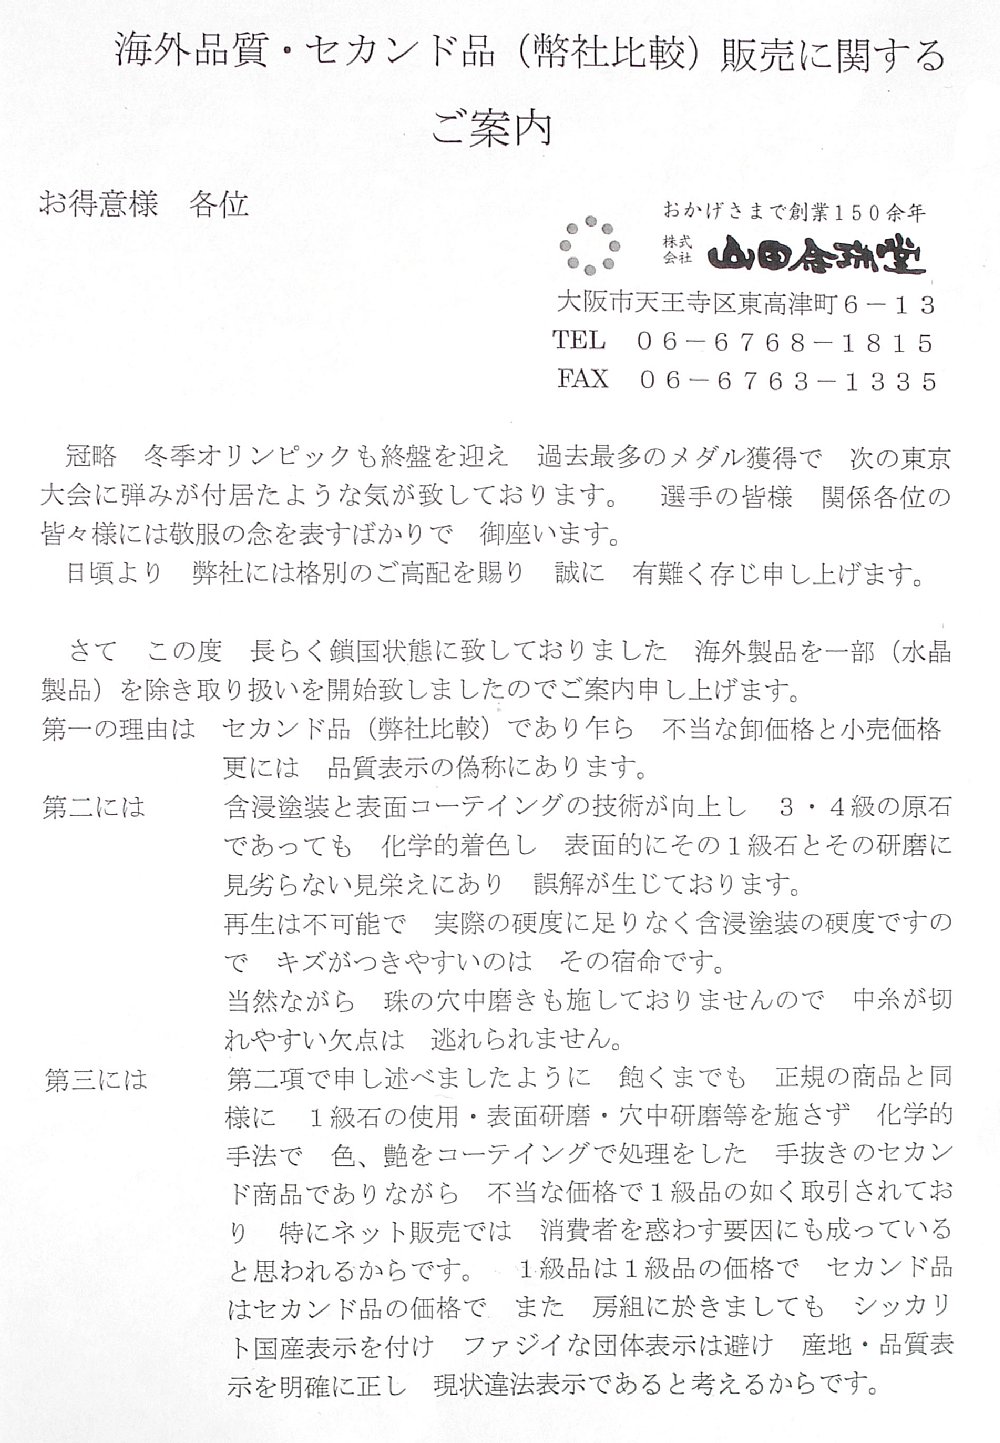 海外品質・セカンド品（幣社比較）販売に関する
ご案内
お得意様　各位
おかげさまで創業150余年
株式会社
大阪市天王寺区東高津町６－１３
TEL　０６－６７６８－１８１５
FAX　０６－６７６３－１３３５
冠略　冬季オリンピックも終盤を迎え　過去最多のメダル獲得で　次の東京
大会に弾みが付居たような気が致しております。　選手の皆様　関係各位の
皆々様には敬服の念を表すばかりで　御座います。
日頃より　弊社には格別のご高配を賜り　誠に　有難く存じ申し上げます。
さて　この度　長らく鎖国状態に致しておりました　海外製品を一部（水晶
製品）を除き取り扱いを開始致しましたのでご案内申し上げます。
第一の理由は　セカンド品（弊社比較）であり乍ら　不当な卸価格と小売価格
更には　品質表示の偽称にあります。
第二には　含浸塗装と表面コーテイングの技術が向上し　３・４級の原石
であっても　化学的着色し　表面的にその１級石とその研磨に
見劣らない見栄えにあり　誤解が生じております。
再生は不可能で　実際の硬度に足りなく含浸塗装の硬度ですの
で　キズがつきやすいのは　その宿命です。
当然ながら　珠の穴中磨きも施しておりませんので　中糸が切
れやすい欠点は　逃れられません。
第三には　第二項で申し述べましたように　飽くまでも　正規の商品と同
様に　１級石の使用・表面研磨・穴中研磨等を施さず　化学的
手法で　色、艶をコーテイングで処理をした　手抜きのセカン
ド商品でありながら　不当な価格で１級品の如く取引されてお
り　特にネット販売では　消費者を惑わす要因にも成っている
と思われるからです。　１級品は１級品の価格で　セカンド品
はセカンド品の価格で　また　房組に於きましても　シッカリ
ト国産表示を付け　ファジイな団体表示は避け　産地・品質表
示を明確に正し　現状違法表示であると考えるからです。